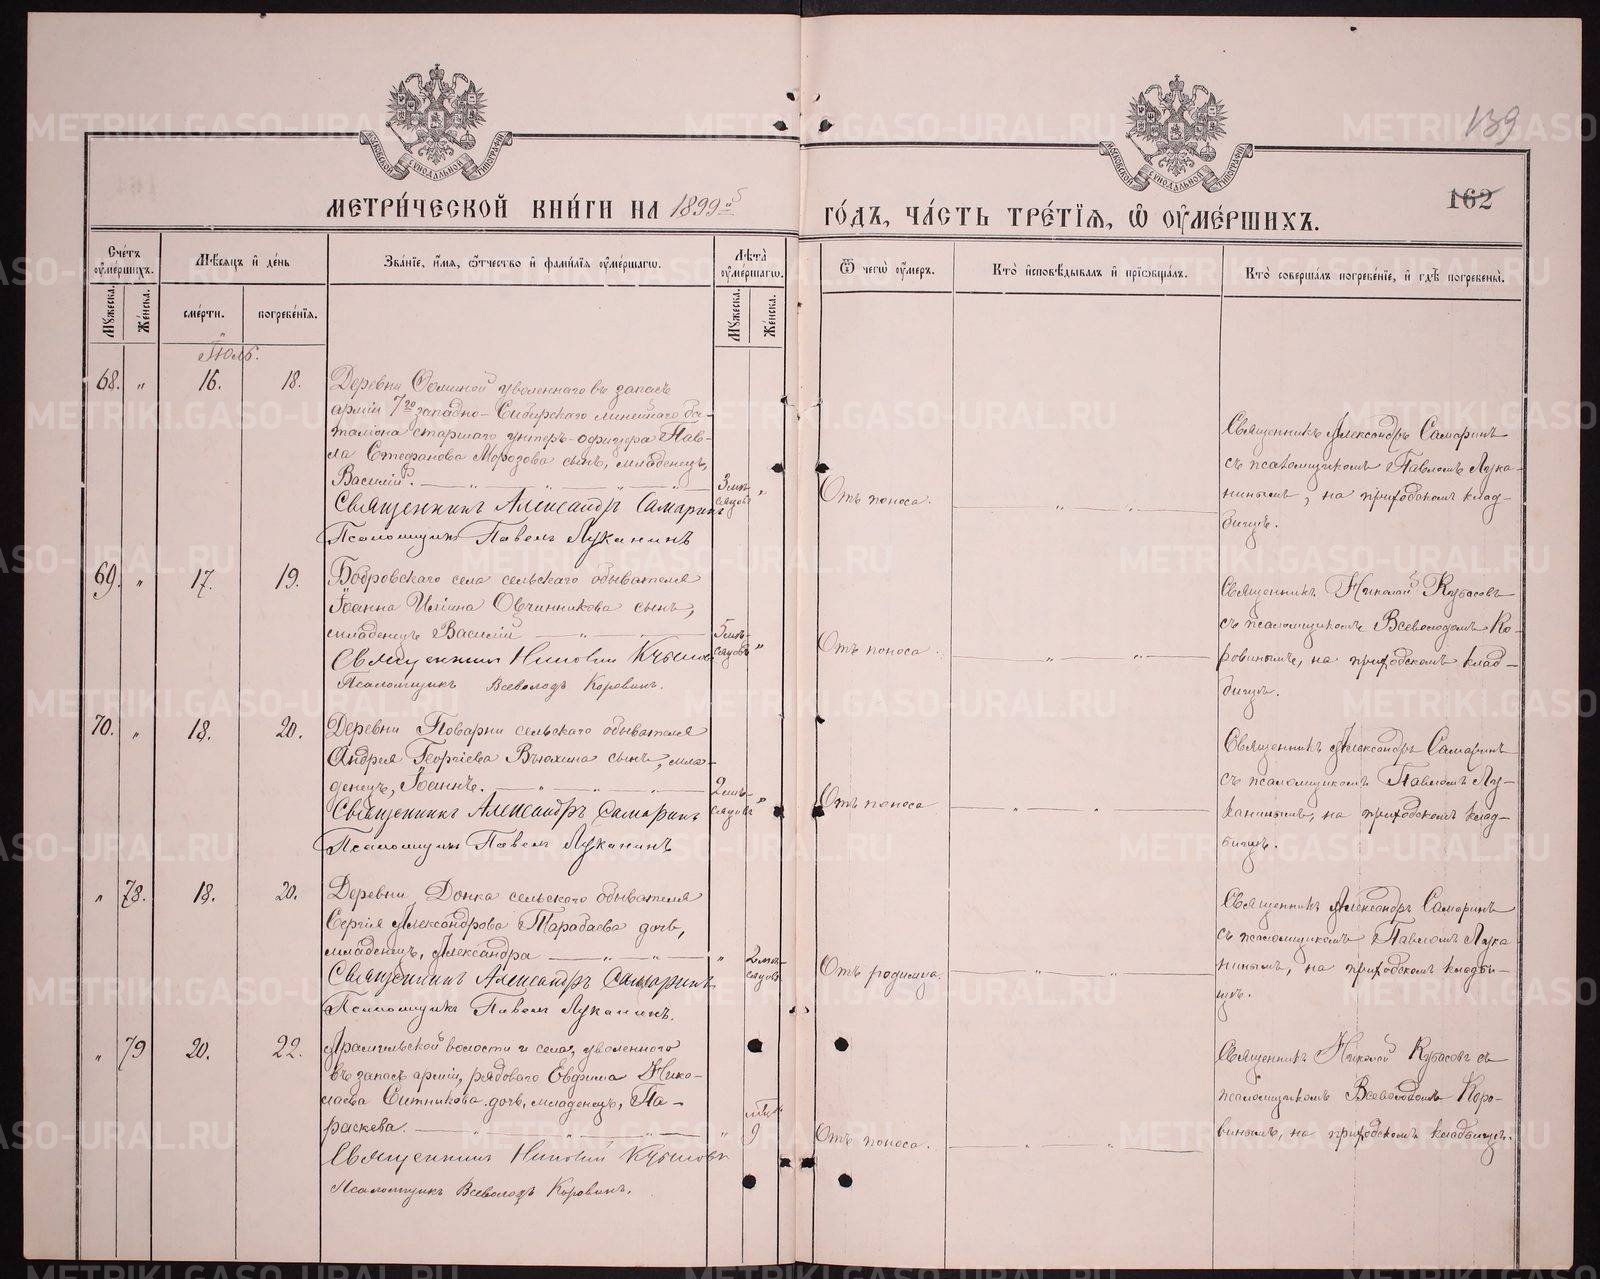 139
162
МЕТРИ́ЧЕСКОЙ КНИ́ГИ НА 1899й
ГО́ДЪ, ЧА́СТЬ ТРЕ́ТЇѦ, Ѡ҆ ОУ҆МЕ́РШИХЪ.
Сче́тъ оу҆ме́ршихъ.
Мꙋ́жеска.
Же́нска.
Мѣ́сяцъ и҆ де́нь
сме́рти.
погребе́нїя.
Зва́нїе, и҆́мя, ѻ҆́тчество и҆ фами́лїя оу҆ме́ршагѡ.
Лѣ́та оу҆ме́ршагѡ.
Мꙋ́жеска.
Же́нска.
Ѿ чегѡ̀ оу҆́меръ.
Кто̀ и҆сповѣ́дывалъ и҆ прїѻбща́лъ.
Кто̀ соверша́лъ погребе́нїе, и҆ гдѣ̀ погребены̀.
Іюль.
68. " 16. 18.
Деревни Фоминой уволеннаго въ запасъ
арміи 7го западно-Сибирскаго линейнаго ба-
таліона старшаго унтеръ-офицера Пав-
ла Стефанова Морозова сынъ, младенецъ,
Василій.
3 мѣ-
сяцовъ "
Священникъ Александръ Самаринъ
Псаломщикъ Павелъ Луканинъ
Отъ поноса.
Священникъ Александръ Самаринъ
съ псаломщикомъ Павломъ Лука-
нинымъ, на приходскомъ клад-
бищѣ.
69. " 17. 19.
Бобровскаго села сельскаго обывателя
Іоанна Иліина Овчинникова сынъ,
младенецъ Василій
5 мѣ-
сяцовъ "
Священникъ Николай Кубасовъ
Псаломщикъ Всеволодъ Коровинъ.
Отъ поноса.
Священникъ Николай Кубасовъ
съ псаломщикомъ Всеволодомъ Ко-
ровинымъ, на приходскомъ клад-
бищѣ.
70. " 18. 20.
Деревни Поварни сельскаго обывателя
Андрея Георгіева Вьюхина сынъ, мла-
денецъ, Іоаннъ.
2 мѣ-
сяцовъ "
Священникъ Александръ Самаринъ
Псаломщикъ Павелъ Луканинъ
Отъ поноса
Священникъ Александръ Самаринъ
съ псаломщикомъ Павломъ Лу-
канинымъ, на приходскомъ клад-
бищѣ.
" 78. 18. 20.
Деревни Донка сельскаго обывателя
Сергія Александрова Тарабаева дочь,
младенецъ, Александра
" 2 мѣ-
сяцовъ
Священникъ Александръ Самаринъ
Псаломщикъ Павелъ Луканинъ.
Отъ родимца.
Священникъ Александръ Самаринъ
съ псаломщикомъ Павломъ Лука
нинымъ, на приходскомъ кладби-
щѣ.
" 79 20. 22.
Арамильской волости и села, уволеннаго
въ запасъ арміи, рядоваго Евфима Нико-
лаева Ситникова дочь, младенецъ, Па-
раскева.
" 9
Священникъ Николай Кубасовъ
Псаломщикъ Всеволодъ Коровинъ.
Отъ поноса.
Священникъ Николай Кубасовъ съ
псаломщикомъ Всеволодомъ Коро-
винымъ, на приходскомъ кладбищѣ.
METRIKI.GASO-URAL.RU